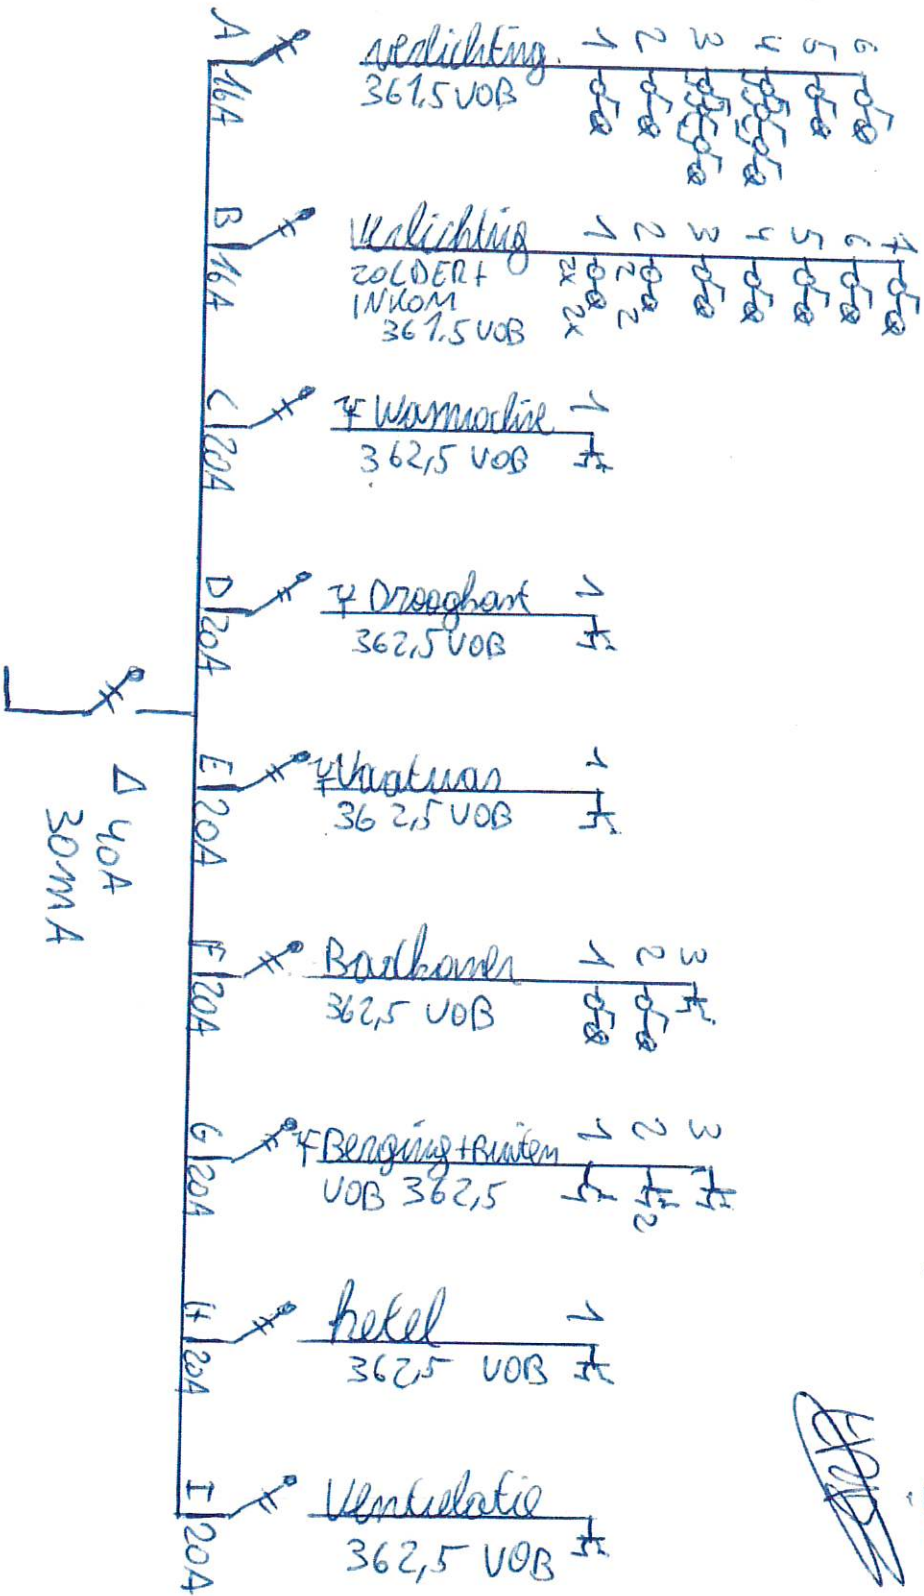 A
16A
verlichting
361,5 VOB
1 2 3 4 5 6
B
16A
verlichting
ZOLDER+
INKOM
361.5 VOB
1 2 3 4 5 6 7
2x 2x
2 2
C
20A
Wasmachine
362,5 VOB
1
D
20A
Droogkast
362,5 VOB
1
Δ 40A
30mA
E
20A
Vaatwas
362,5 VOB
1
F
20A
Badkamer
362,5 VOB
1 2 3
G
20A
Berging+Buiten
VOB 362,5
1 2 3
2
H
20A
ketel
362,5 VOB
1
I
20A
Ventielatie
362,5 VOB